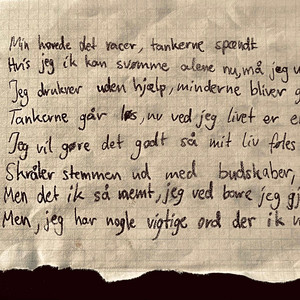 Min hovede det racer, tankerne spændt
Hvis jeg ik kan svømme alene nu, må jeg v
Jeg drukner uden hjælp, minderne bliver g
Tankerne går løs, nu ved jeg livet er e
Jeg vil gøre det godt så mit liv føles
Skråler stemmen ud med budskaber,
Men det ik så nemt, jeg ved bare jeg gj
Men, jeg har nogle vigtige ord der ik